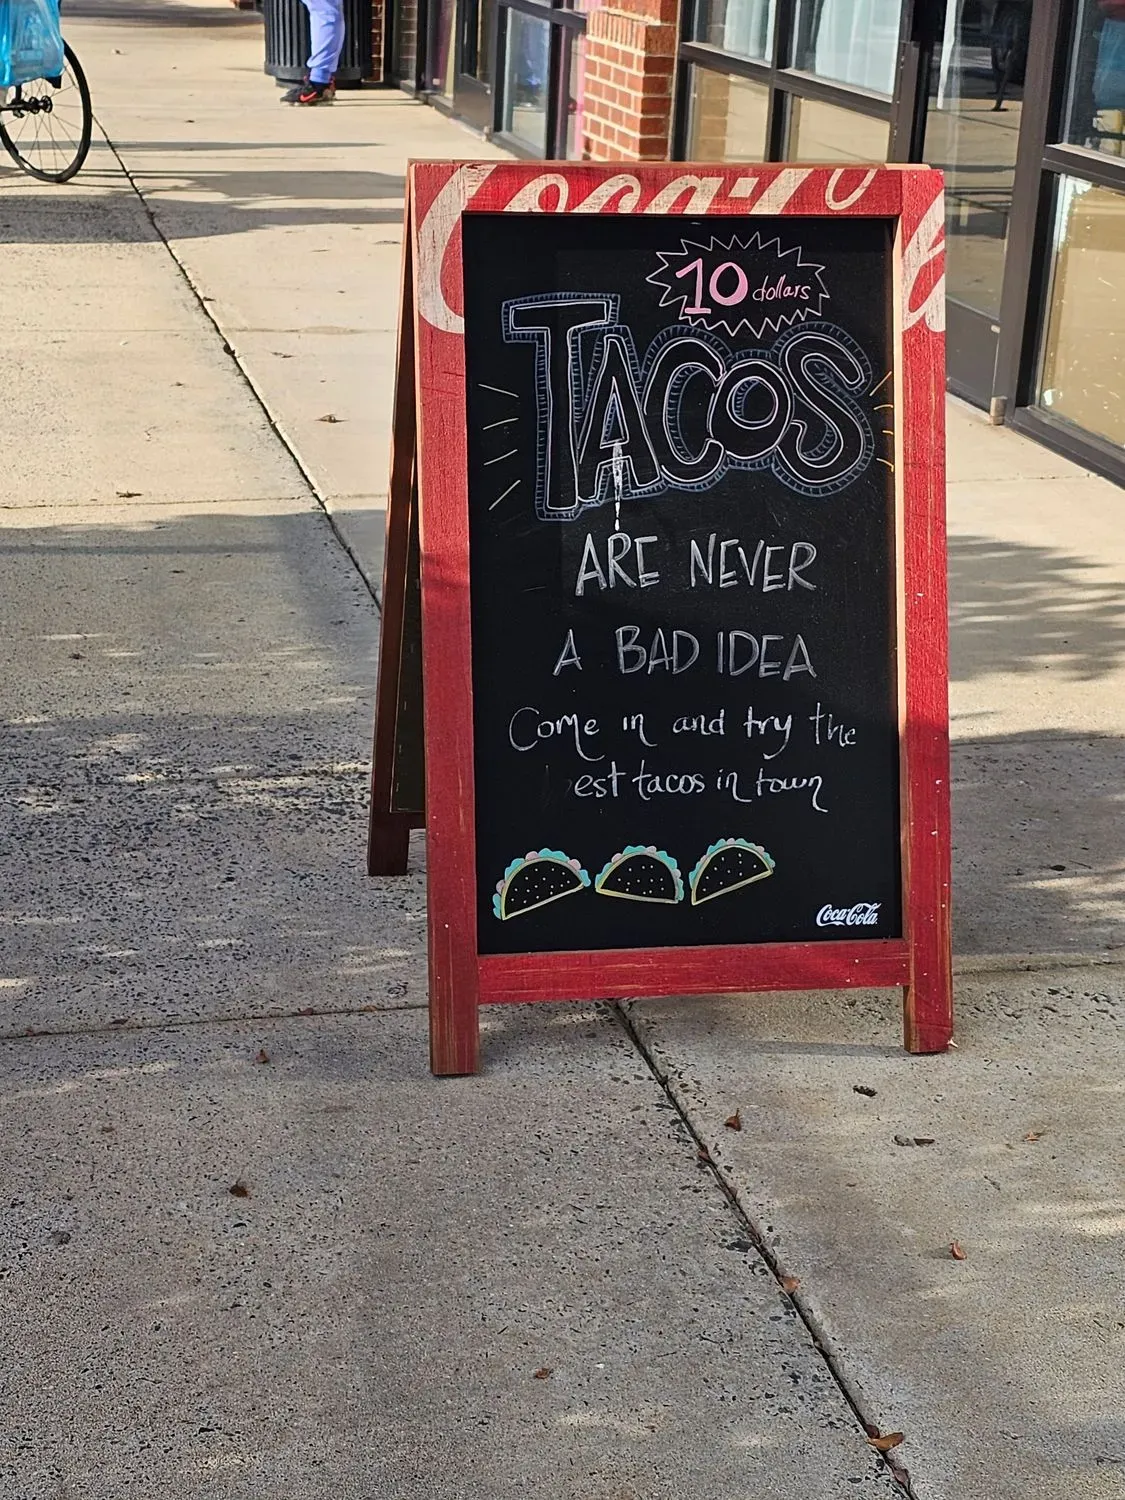 Coca-Co
10 dollars
TACOS
ARE NEVER
A BAD IDEA
Come in and try the
est tacos in town
Coca-Cola